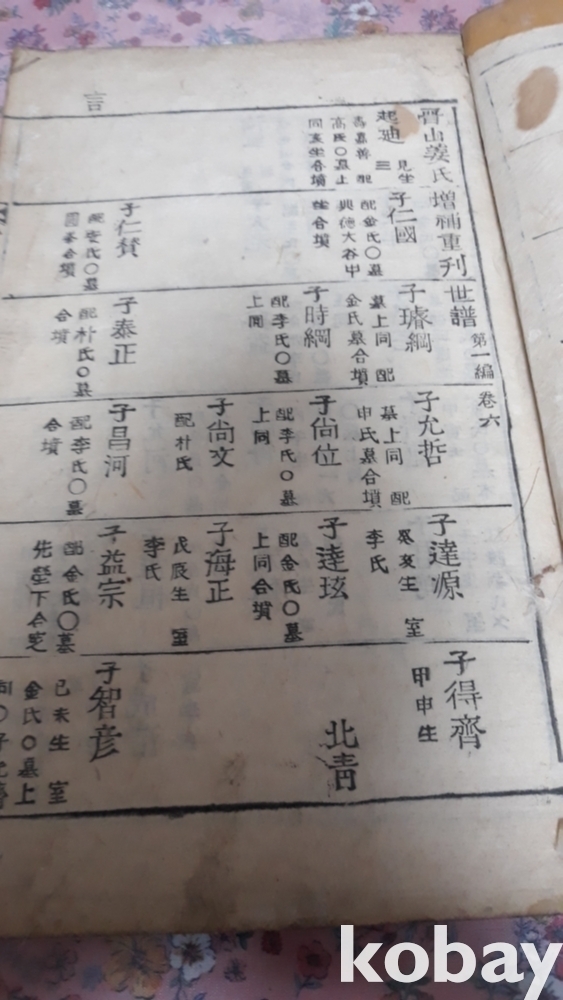 言
晉山姜氏增補重刊世譜 第一編 卷六
起迪 見生三
壽嘉善 配
高氏〇墓上
同亥生合墳
子仁國
配金氏〇墓
興德大谷中
合墳
子仁贊
配安氏〇墓
合墳
子璿綱
墓上同 配
金氏墓合墳
子時綱
配李氏〇墓
上同
子泰正
配朴氏〇墓
合墳
子允哲
墓上同 配
申氏墓合墳
子尙位
配李氏〇墓
上同
子尙文
配朴氏
子昌河
配李氏〇墓
合墳
子達源
癸亥生 室
李氏
子逵玹
配金氏〇墓
上同合墳
子海正
戊辰生 室
李氏
子益宗
配金氏〇墓
先塋下合窆
子得齊
甲申生
北青
子智彦
己未生 室
金氏〇墓上
同〇子
kobay